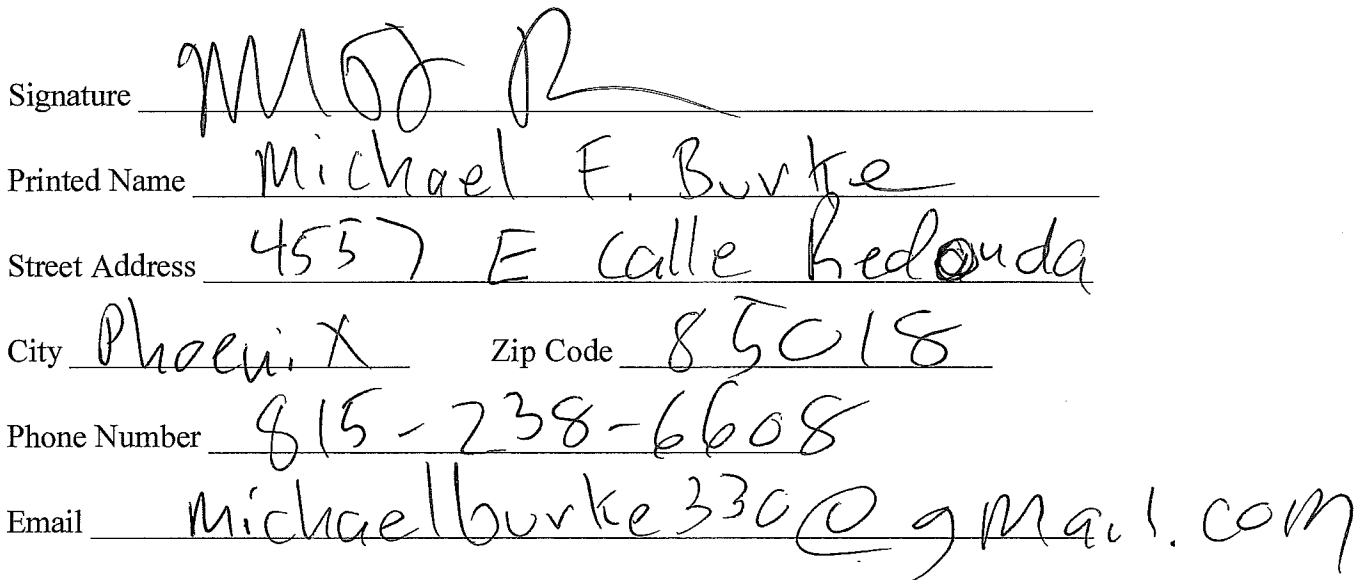 Signature
Printed Name Michael F. Burke
Street Address 4557 E Calle Redonda
City Phoenix Zip Code 85018
Phone Number 815-238-6608
Email michaelburke330@gmail.com